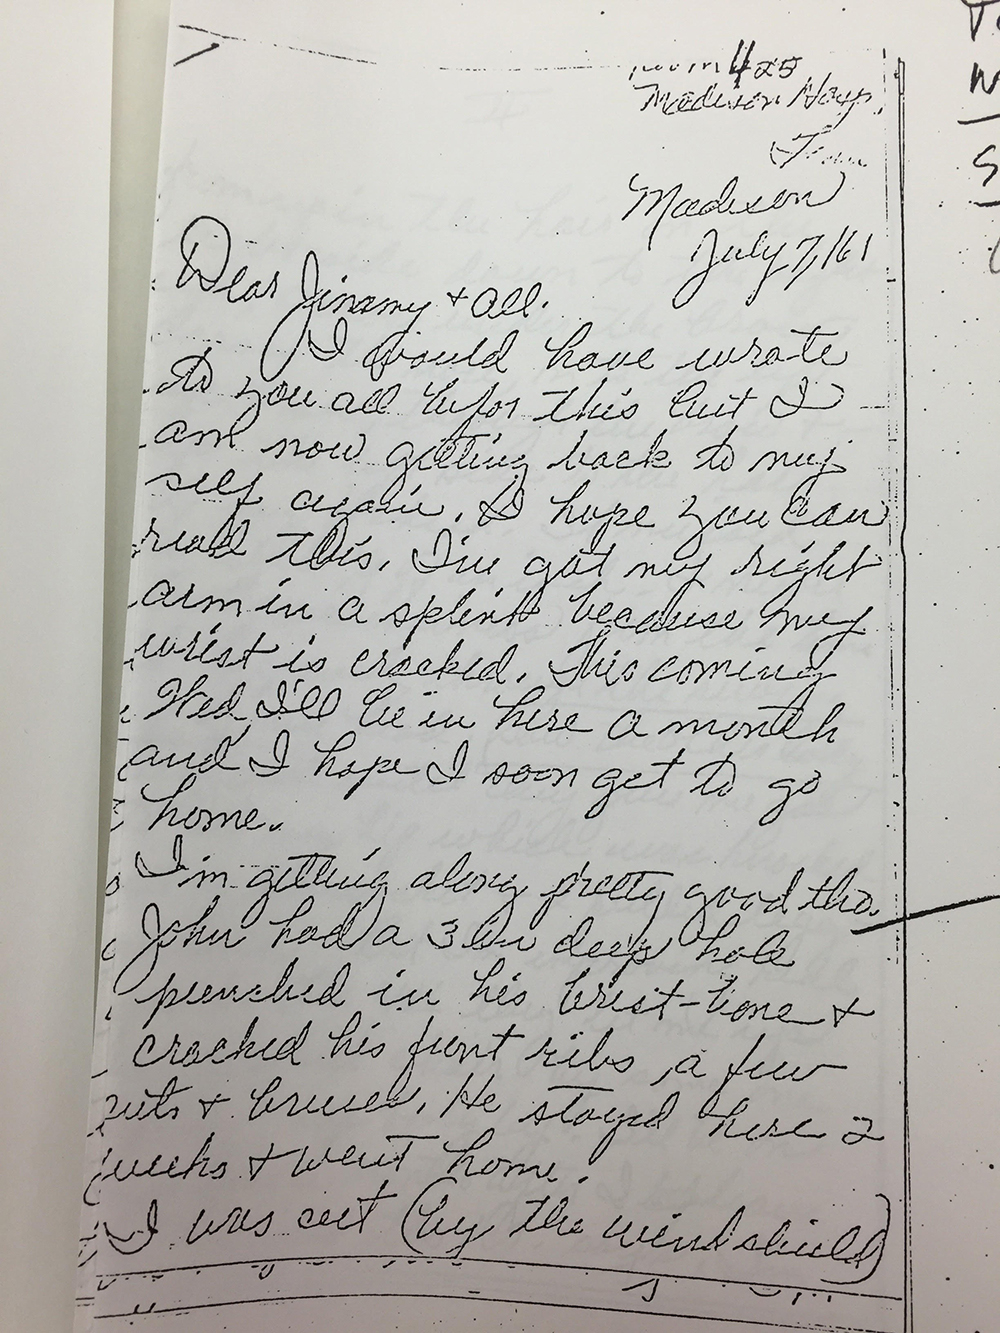 room 425
Madison Hosp.
Tenn.
Madison
July 7, 161
Dear Jimmy + all.
I would have wrote
to you all befor this but I
am now getting back to my
self again. I hope you can
read this. I've got my right
arm in a splint because my
wrist is cracked. This coming
Wed, I'll be in here a month
and I hope I soon get to go
home.
I'm getting along pretty good tho.
John had a 3 in deep hole
punched in his brist-bone +
cracked his funt ribs, a few
cuts + bruses. He stayed here 2
weeks + went home.
I was cut (by the windshield)